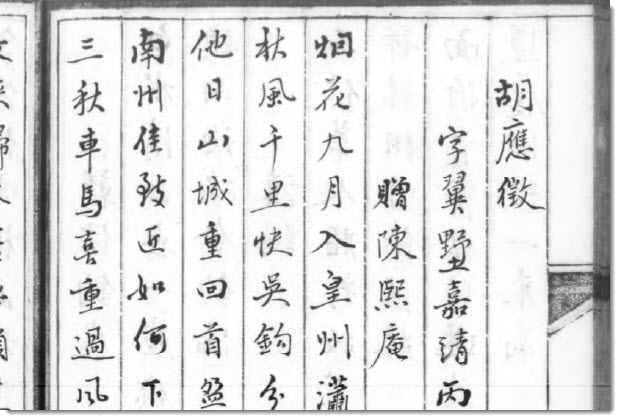 胡應徵
字翼墅嘉靖丙
贈陳熙庵
烟花九月入皇州瀟
秋風千里快吳鉤分
他日山城重回首盈
南州佳致近如何下
三秋車馬喜重過風